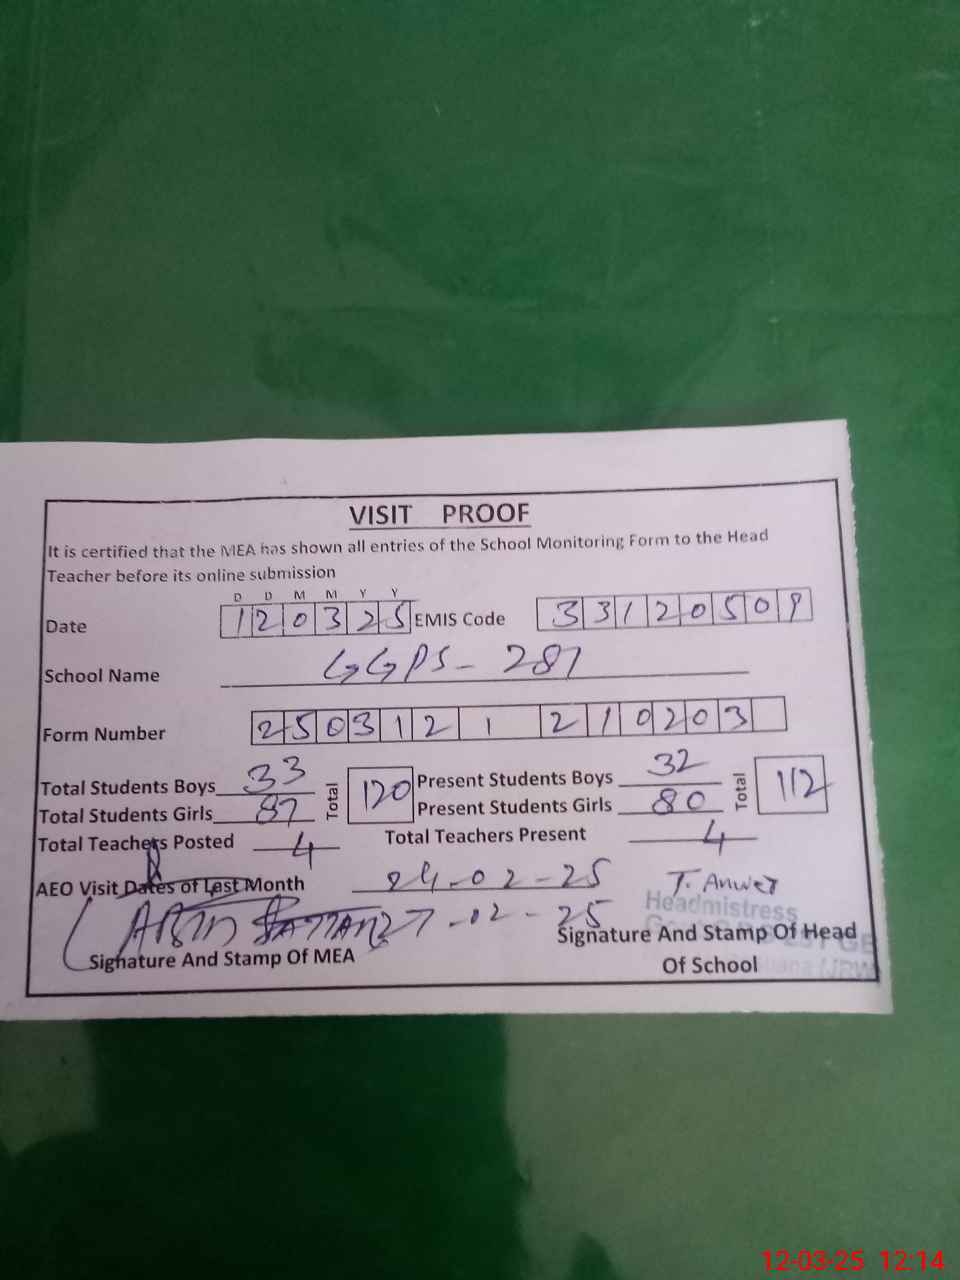 VISIT PROOF
It is certified that the MEA has shown all entries of the School Monitoring Form to the Head
Teacher before its online submission
D D M M Y Y
Date 120325 EMIS Code 33120509
School Name GGPS-281
Form Number 250312 1 210203
Total Students Boys 33 Total 120 Present Students Boys 32 Total 112
Total Students Girls 87 Present Students Girls 80
Total Teachers Posted 4 Total Teachers Present 4
AEO Visit Dates of Last Month 24-02-25 T. Anwer
27-02-25 Headmistress
Signature And Stamp Of MEA Signature And Stamp Of Head
Of School
12-03-25 12:14